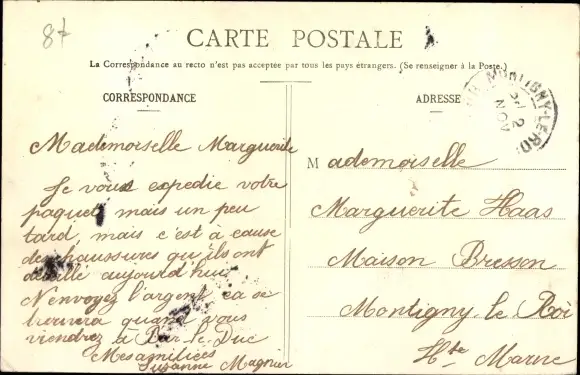 8t
CARTE POSTALE
La Correspondance au recto n'est pas acceptée par tous les pays étrangers. (Se renseigner à la Poste.)
CORRESPONDANCE
Mademoiselle Marguerite
Je vous expedie votre
paquet mais un peu
tard, mais c'est à cause
des chaussures qu'ils ont
aujourd'hui
N'envoyez l'argent ca se
quand vous
viendrez à Bar-le-Duc
Mes amitiées
Suzanne Magnier
ADRESSE
MONTIGNY-LE-RO
2
NOV
Mademoiselle
Marguerite Haas
Maison Bresson
Montigny le Roi
Hte Marne